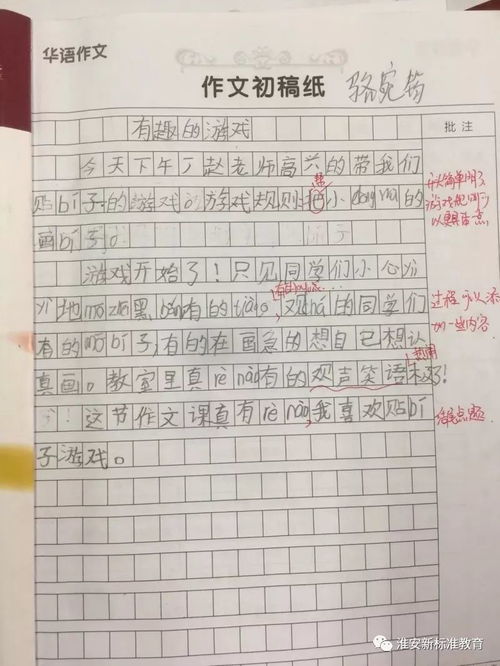 华语作文
作文初稿纸
批注
有趣的游戏
今天下午丁赵老师高兴的带我们
贴bí子的游戏。游戏规则是 小 的
帮
画bí子。
游戏开始了！只见同学们小心
地 黑 有的 观 的同学们
有的 bí子,有的在画 的想自己想认
真画。教室里真rè nào有的观声笑语极了!
这节作文课真有rè nào,我喜欢贴bí
子游戏。
开头简单明了
游戏规则可
以具体一点
过程可以添
加一些内容
结尾点题
淮安新标准教育